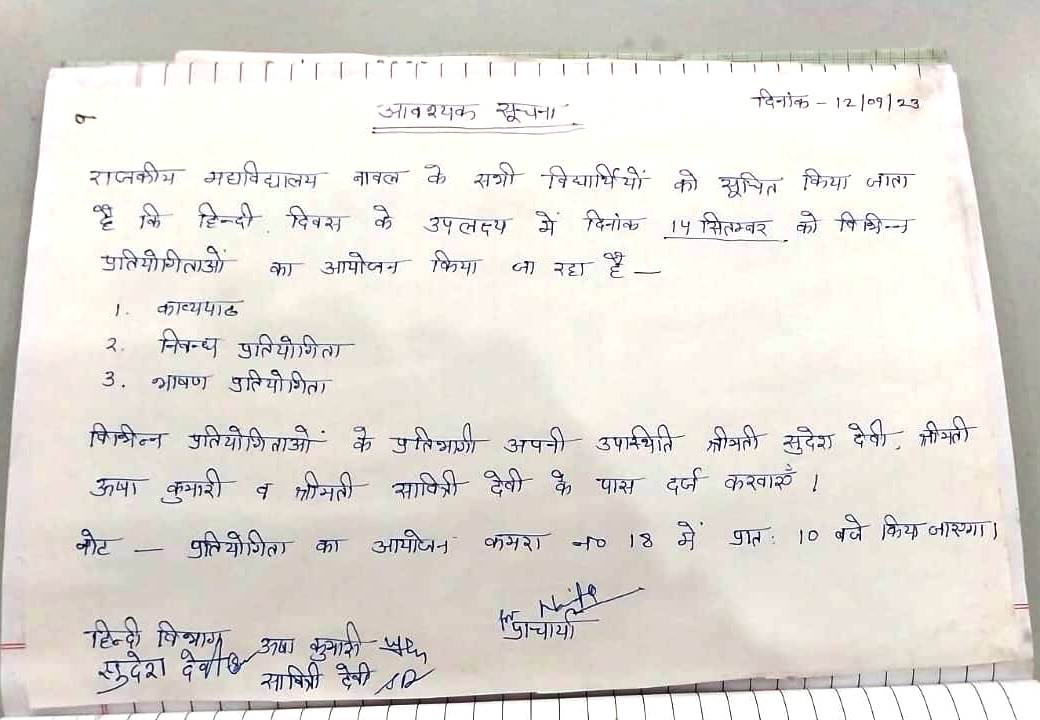 आवश्यक सूचना
दिनांक - 12/09/23
राजकीय महाविद्यालय बावल के सभी विद्यार्थियों को सूचित किया जाता
है कि हिन्दी दिवस के उपलक्ष्य में दिनांक 14 सितम्बर को विभिन्न
प्रतियोगिताओं का आयोजन किया जा रहा है —
1. काव्यपाठ
2. निबन्ध प्रतियोगिता
3. भाषण प्रतियोगिता
विभिन्न प्रतियोगिताओं के प्रतिभागी अपनी उपस्थिति श्रीमती सुदेश देवी, श्रीमती
ऊषा कुमारी व श्रीमती सावित्री देवी के पास दर्ज करवाएँ ।
नोट — प्रतियोगिता का आयोजन कमरा नo 18 में प्रात: 10 बजे किया जाएगा।
हिन्दी विभाग
सुदेश देवी
ऊषा कुमारी
सावित्री देवी
प्राचार्या